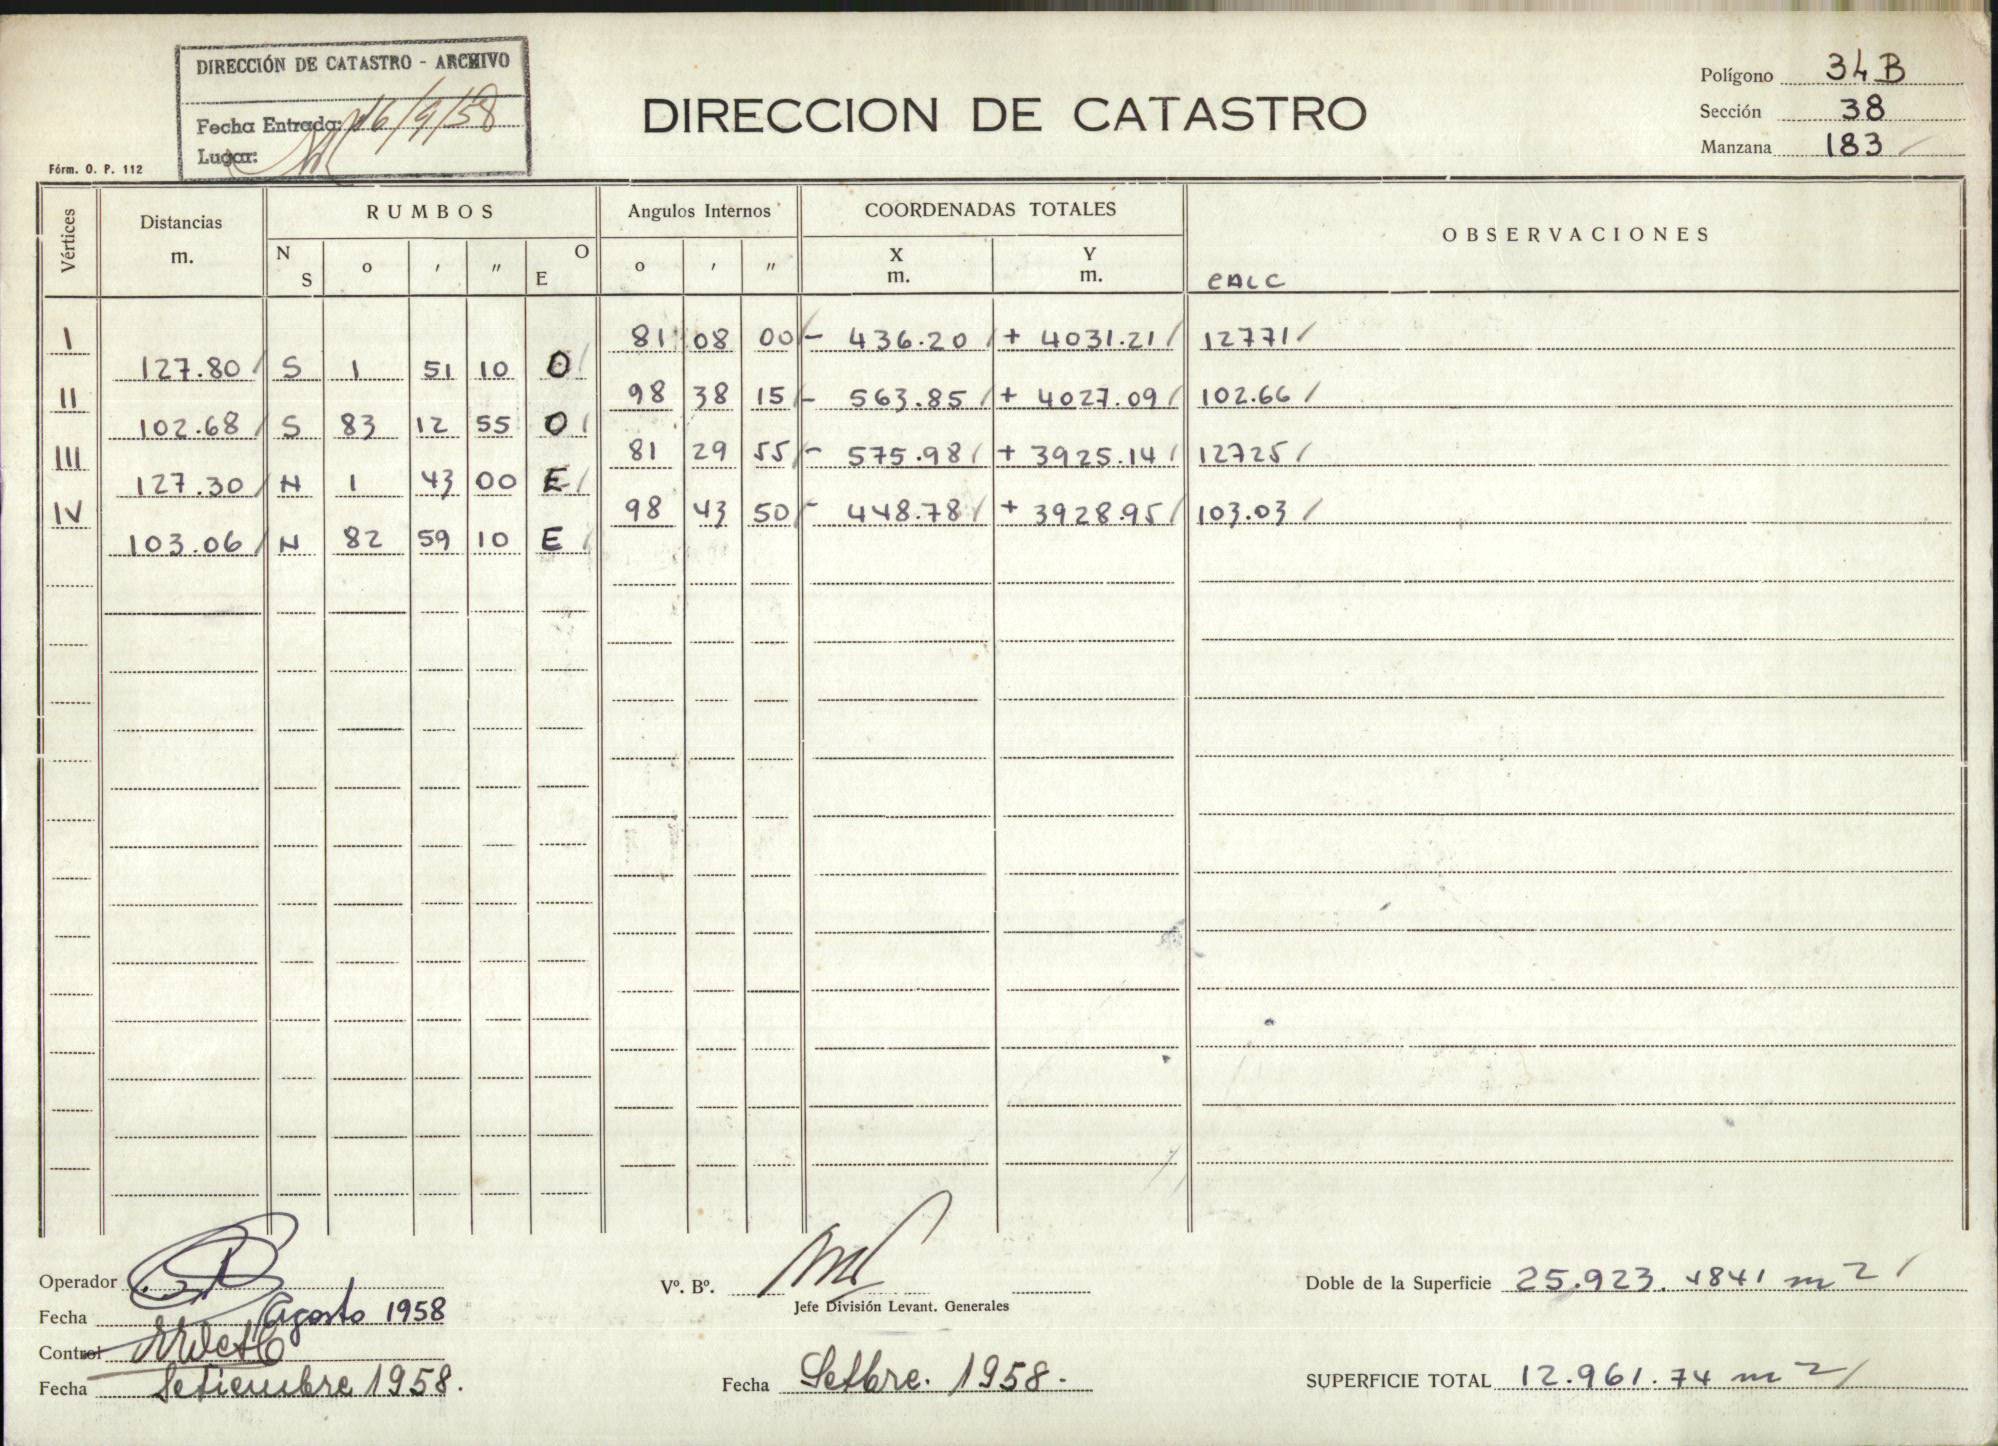 DIRECCIÓN DE CATASTRO - ARCHIVO
Fecha Entrada: 16/9/58
Lugar:
Fórm. O. P. 112
DIRECCION DE CATASTRO
Polígono 34B
Sección 38
Manzana 183
Vértices
Distancias m.
RUMBOS
N S o ' " O E
Angulos Internos
o ' "
COORDENADAS TOTALES
X m. Y m.
OBSERVACIONES
CALC
I 81 08 00 - 436.20 + 4031.21 12771
127.80 S 1 51 10 O
II 98 38 15 - 563.85 + 4027.09 102.66
102.68 S 83 12 55 O
III 81 29 55 - 575.98 + 3925.14 12725
127.30 N 1 43 00 E
IV 98 43 50 - 448.78 + 3928.95 103.03
103.06 N 82 59 10 E
Operador
Fecha Agosto 1958
Control
Fecha Setiembre 1958.
Vº. Bº.
Jefe División Levant. Generales
Fecha Setbre. 1958.
Doble de la Superficie 25.923.4841 m2
SUPERFICIE TOTAL 12.961.74 m2